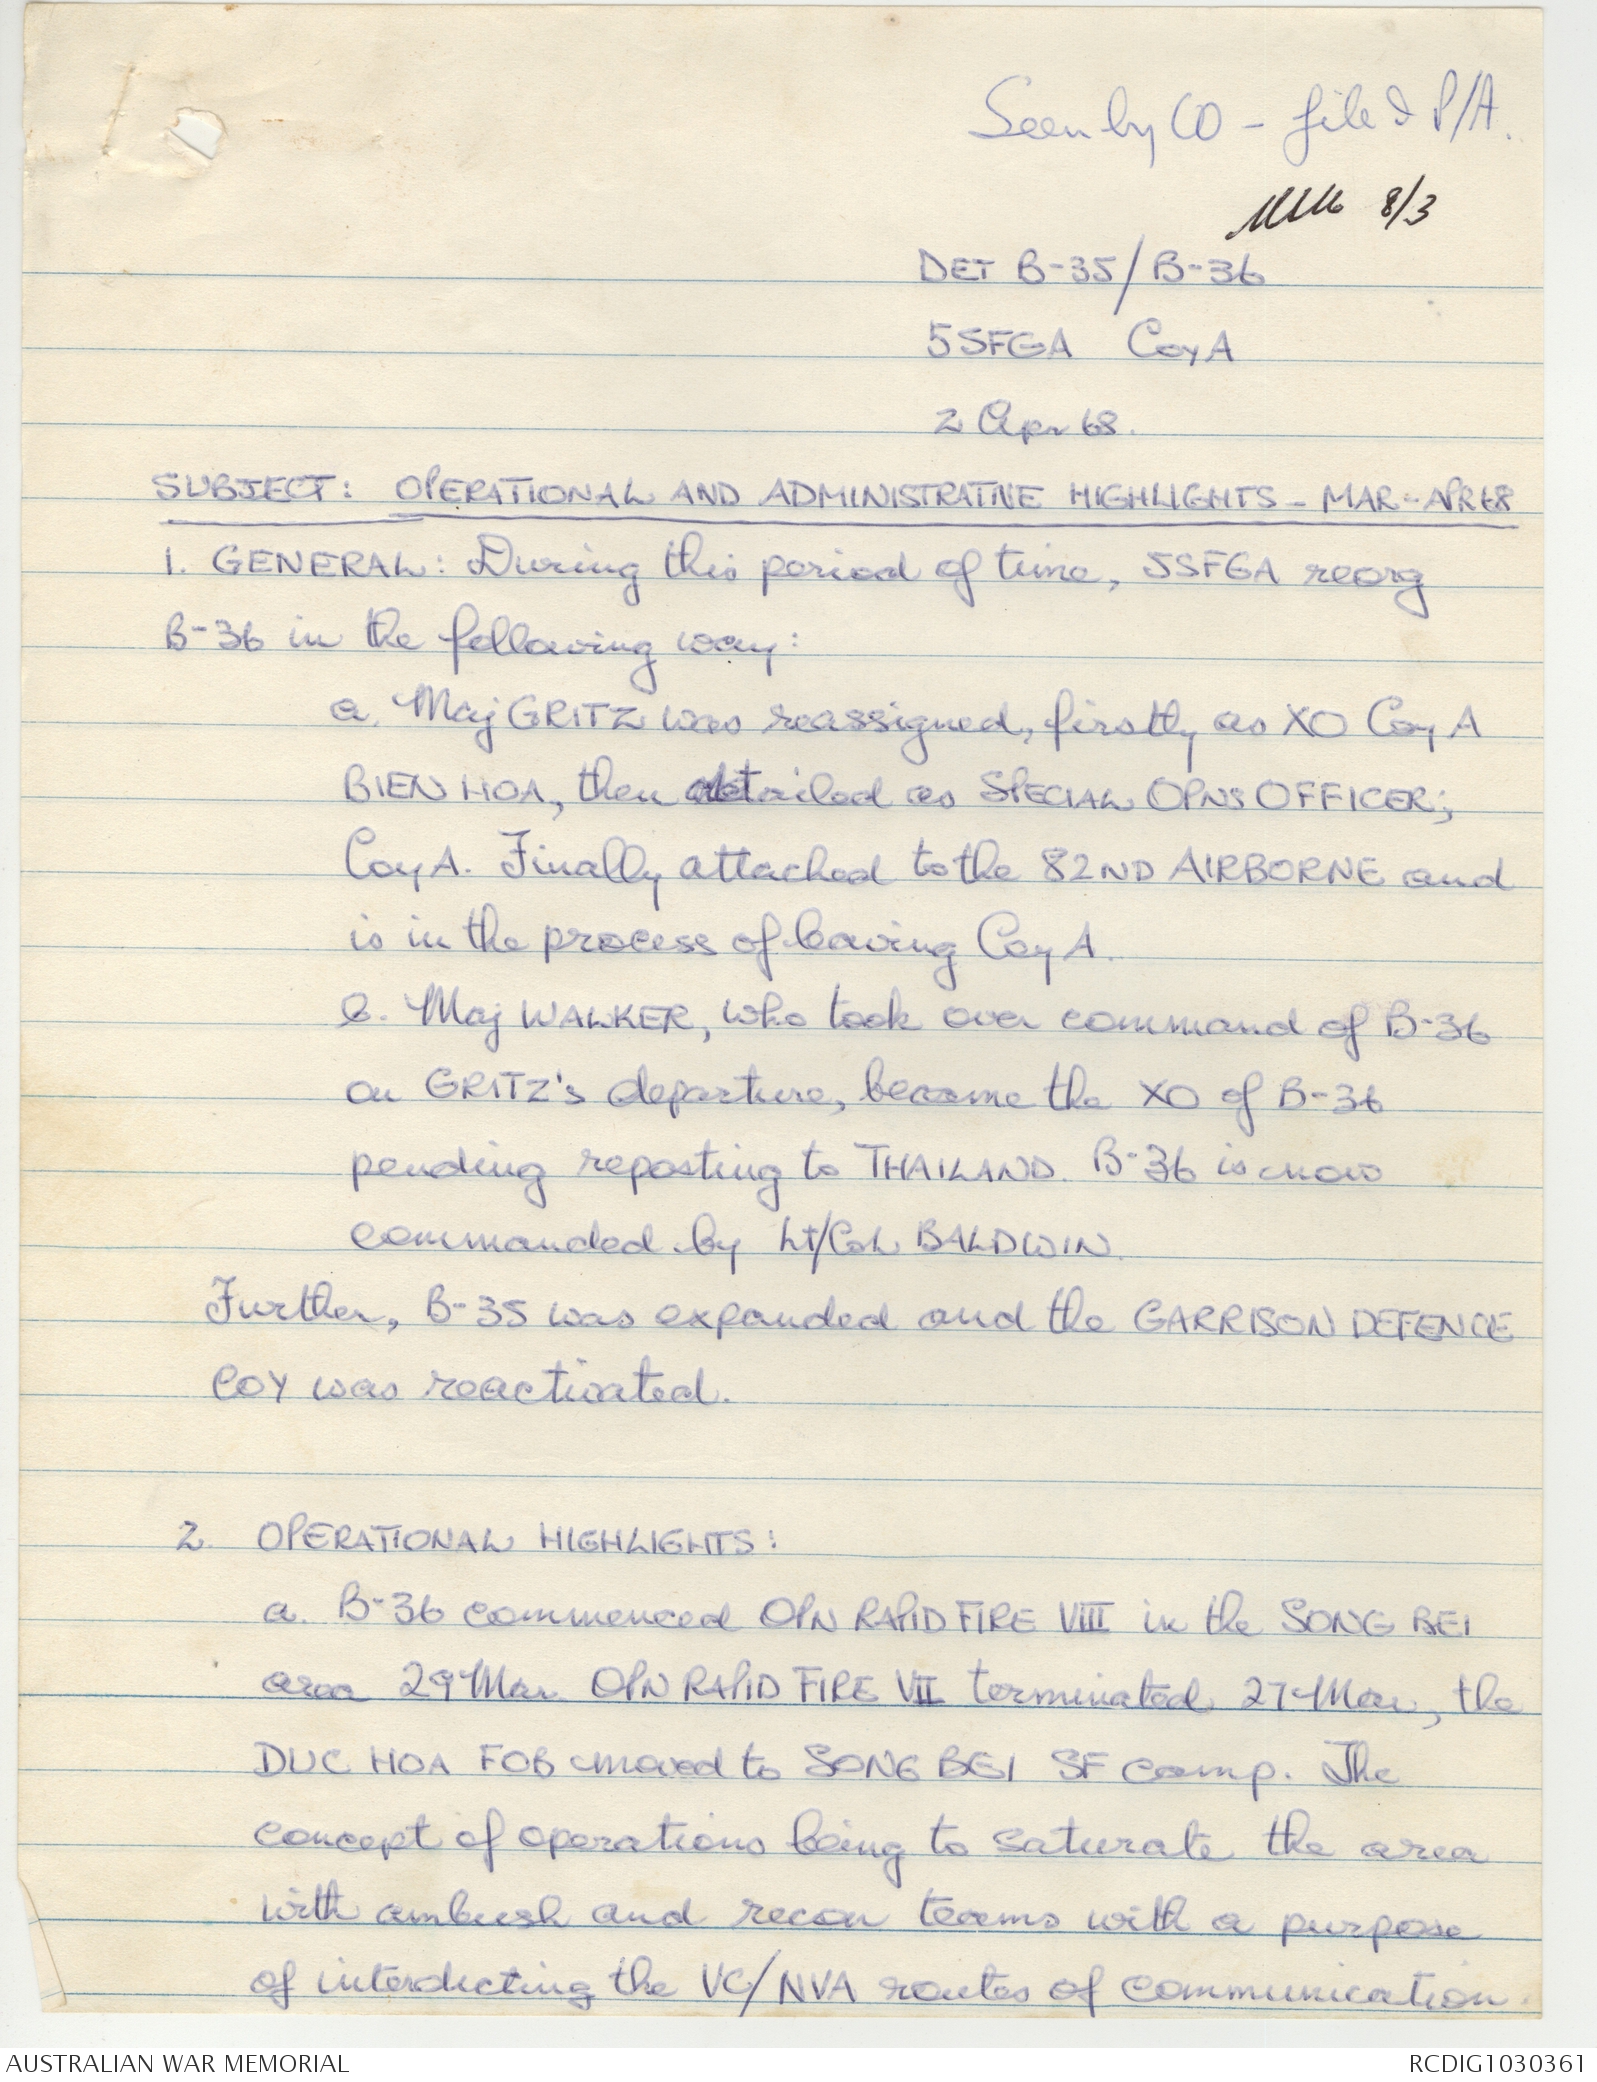 Seen by CO - file & P/A.
8/3
DET B-35/B-36
5SFGA Coy A
2 Apr 68.
SUBJECT: OPERATIONAL AND ADMINISTRATIVE HIGHLIGHTS - MAR-APR 68
1. GENERAL: During this period of time, 5SFGA reorg
B-36 in the following way:
a. Maj GRITZ was reassigned, firstly as XO Coy A
BIEN HOA, then detailed as SPECIAL OPNS OFFICER;
Coy A. Finally attached to the 82ND AIRBORNE and
is in the process of leaving Coy A.
b. Maj WALKER, who took over command of B-36
on GRITZ's departure, became the XO of B-36
pending reposting to THAILAND. B-36 is now
commanded by Lt/Col BALDWIN.
Further, B-35 was expanded and the GARRISON DEFENCE
COY was reactivated.
2. OPERATIONAL HIGHLIGHTS:
a. B-36 commenced OPN RAPID FIRE VIII in the SONG BEI
area 29 Mar. OPN RAPID FIRE VII terminated 27 Mar, the
DUC HOA FOB moved to SONG BEI SF camp. The
concept of operations being to saturate the area
with ambush and recon teams with a purpose
of interdicting the VC/NVA routes of communication.
AUSTRALIAN WAR MEMORIAL
RCDIG1030361